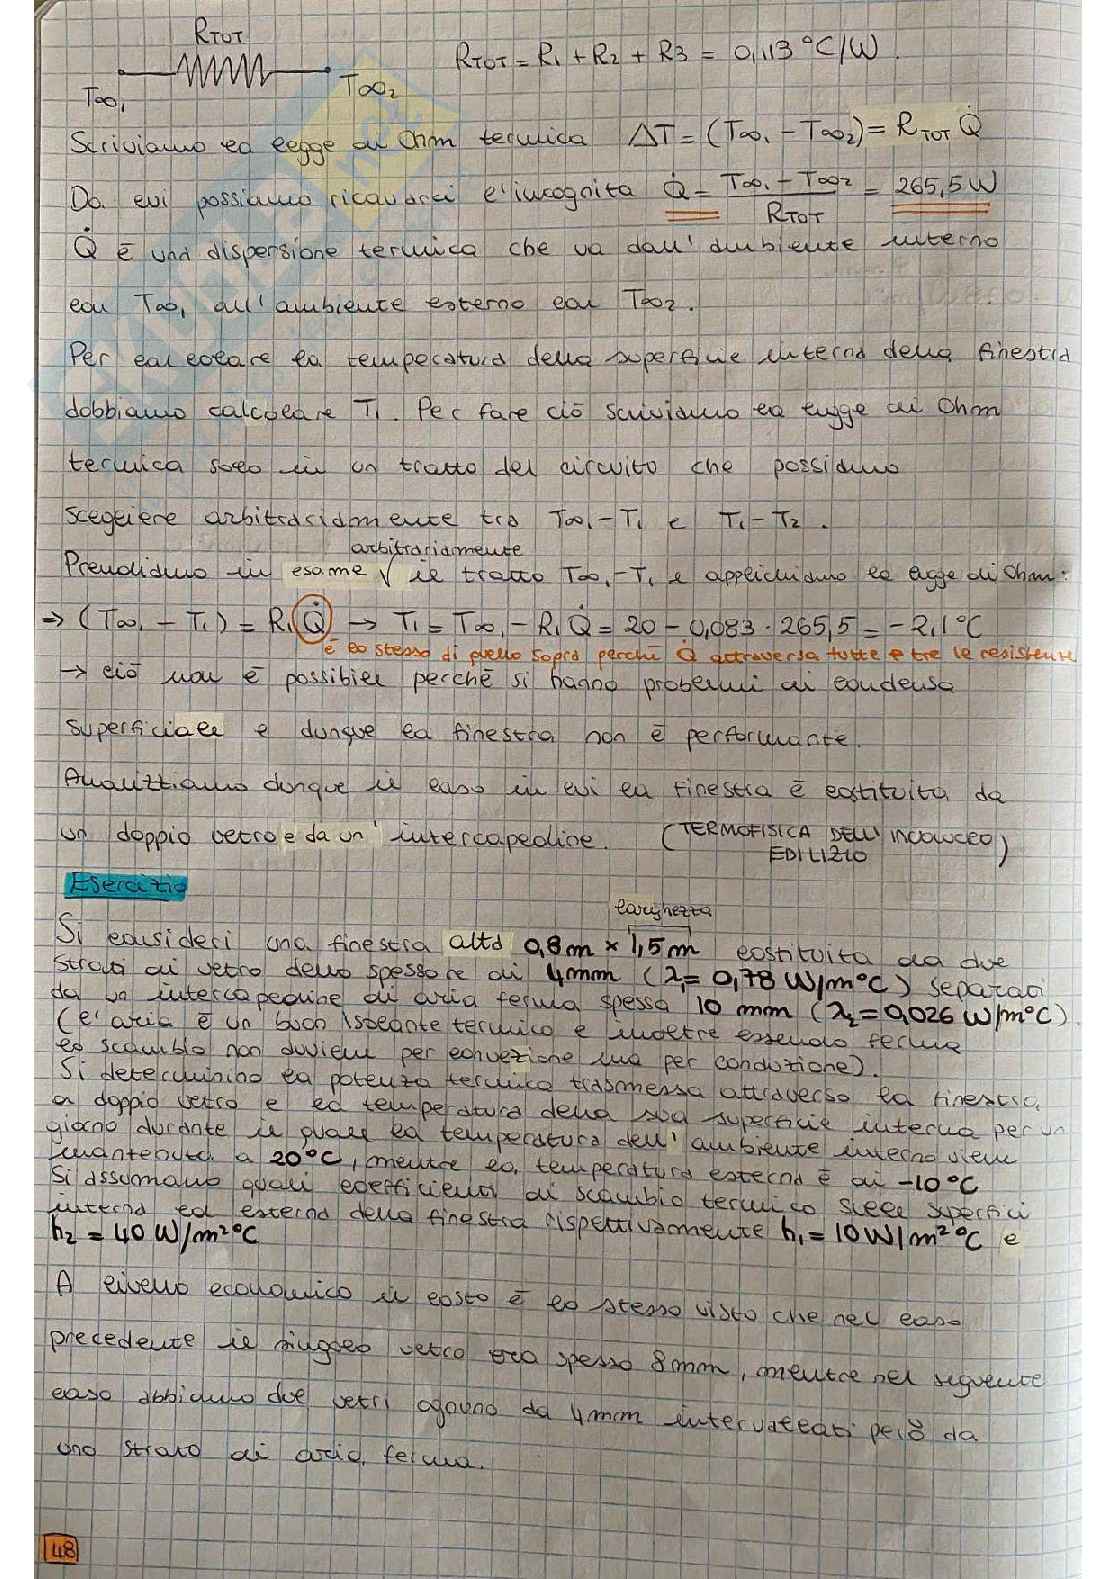 RTOT
RTOT = R1 + R2 + R3 = 0,113 °C/W.
T∞1 T∞2
Scriviamo la legge di Ohm termica ΔT = (T∞1 - T∞2) = RTOT Q̇
Da cui possiamo ricavarci l'incognita Q̇ = T∞1 - T∞2 / RTOT = 265,5 W
Q̇ è una dispersione termica che va dall'ambiente interno
con T∞1 all'ambiente esterno con T∞2.
Per calcolare la temperatura della superficie interna della finestra
dobbiamo calcolare T1. Per fare ciò scriviamo la legge di Ohm
termica solo in un tratto del circuito che possiamo
scegliere arbitrariamente tra T∞1 - T1 e T1 - T2.
arbitrariamente
Prendiamo in esame √ il tratto T∞1 - T1 e applichiamo la legge di Ohm:
→ (T∞1 - T1) = R1 Q̇ → T1 = T∞1 - R1 Q̇ = 20 - 0,083 · 265,5 = -2,1 °C
è lo stesso di quello sopra perchè Q̇ attraversa tutte e tre le resistenze
→ ciò non è possibile perchè si hanno problemi di condensa
superficiale e dunque la finestra non è performante.
Analizziamo dunque il caso in cui la finestra è costituita da
un doppio vetro e da un' intercapedine. (TERMOFISICA DELL' INVOLUCRO
EDILIZIO)
Esercizio
larghezza
Si consideri una finestra alta 0,8 m × 1,5 m costituita da due
strati di vetro dello spessore di 4 mm (λ1 = 0,78 W/m°C) separati
da un intercapedine di aria ferma spessa 10 mm (λ2 = 0,026 W/m°C).
(l'aria è un buon isolante termico e inoltre essendo ferma
lo scambio non avviene per convezione ma per conduzione).
Si determinino la potenza termica trasmessa attraverso la finestra
a doppio vetro e la temperatura della sua superficie interna per un
giorno durante il quale la temperatura dell' ambiente interno viene
mantenuta a 20°C, mentre la temperatura esterna è di -10°C
Si assumano quali coefficienti di scambio termico sulle superfici
interna ed esterna della finestra rispettivamente h1 = 10 W/m² °C e
h2 = 40 W/m² °C
A livello economico il costo è lo stesso visto che nel caso
precedente il singolo vetro era spesso 8 mm, mentre nel seguente
caso abbiamo due vetri ognuno da 4 mm intervallati però da
uno strato di aria ferma.
48